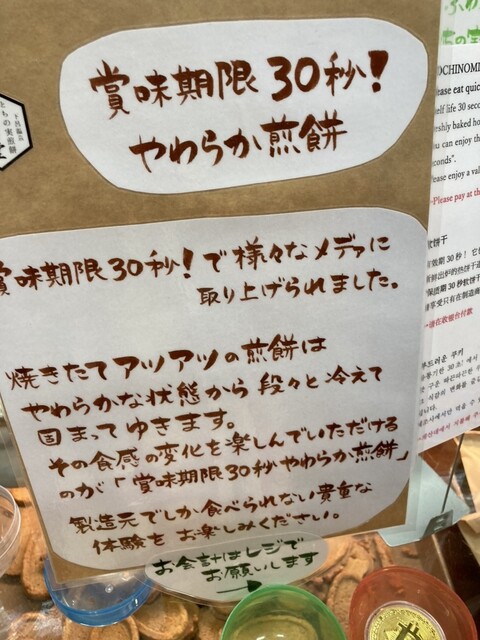 賞味期限30秒!
やわらか煎餅
下呂温泉
とちの実煎餅
賞味期限30秒!で様々なメディアに
取り上げられました。
焼きたてアツアツの煎餅は
やわらかな状態から段々と冷えて
固まってゆきます。
その食感の変化を楽しんでいただける
のが「賞味期限30秒やわらか煎餅」
製造元でしか食べられない貴重な
体験をお楽しみください。
お会計はレジで
お願いします
OCHINOMI
Please eat quic
elf life 30 secon
reshly baked ho
ou can enjoy th
conds".
Please enjoy a val
~Please pay at th
软饼干
有效期30秒!
~请在收银台付款
부드러운 쿠키